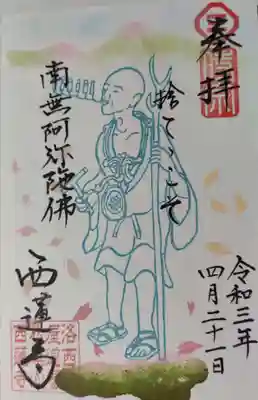 奉拝
捨てゝこそ
南無阿弥陀佛
西蓮寺
令和三年
四月二十一日